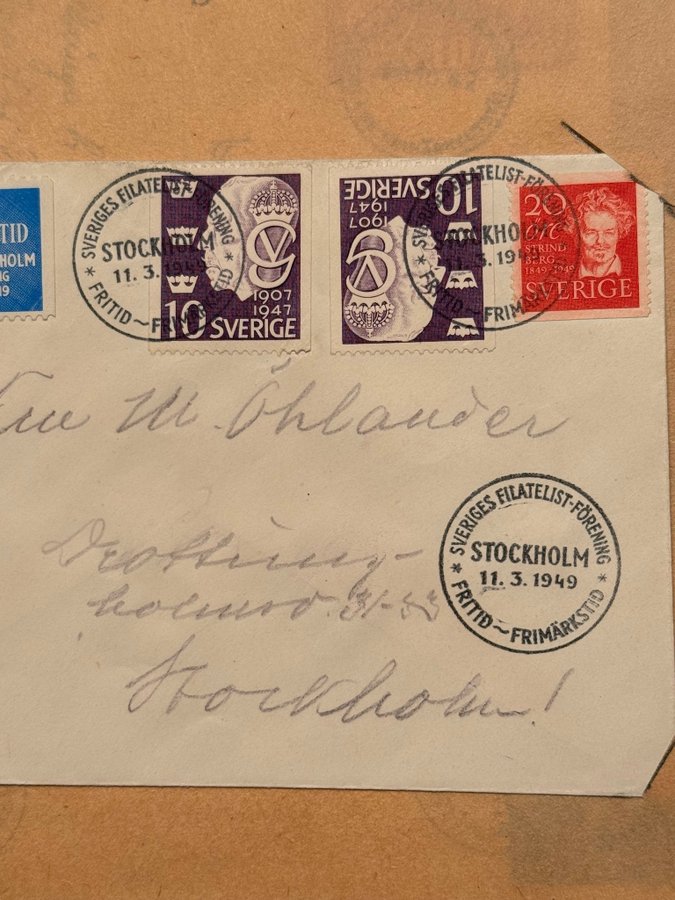 TID
HOLM
NG
19
SVERIGES FILATELIST-FÖRENING
STOCKHOLM
11. 3. 1949
FRITID ~ FRIMÄRKSTID
10 SVERIGE
1907
1947
10 SVERIGE
1907
1947
SVERIGES FILATELIST-FÖRENING
STOCKHOLM
11. 3. 19
FRITID ~ FRIMÄRKSTID
20
STRIND
BERG
1849-1949
SVERIGE
M. Öhlander
Drottning-
holmsv. 31-33
Stockholm!
SVERIGES FILATELIST-FÖRENING
STOCKHOLM
11. 3. 1949
FRITID ~ FRIMÄRKSTID